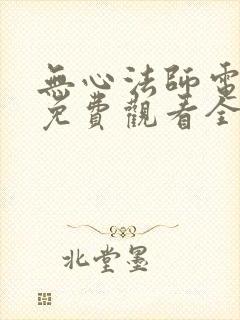 無心法師電
免費觀看全
北堂墨